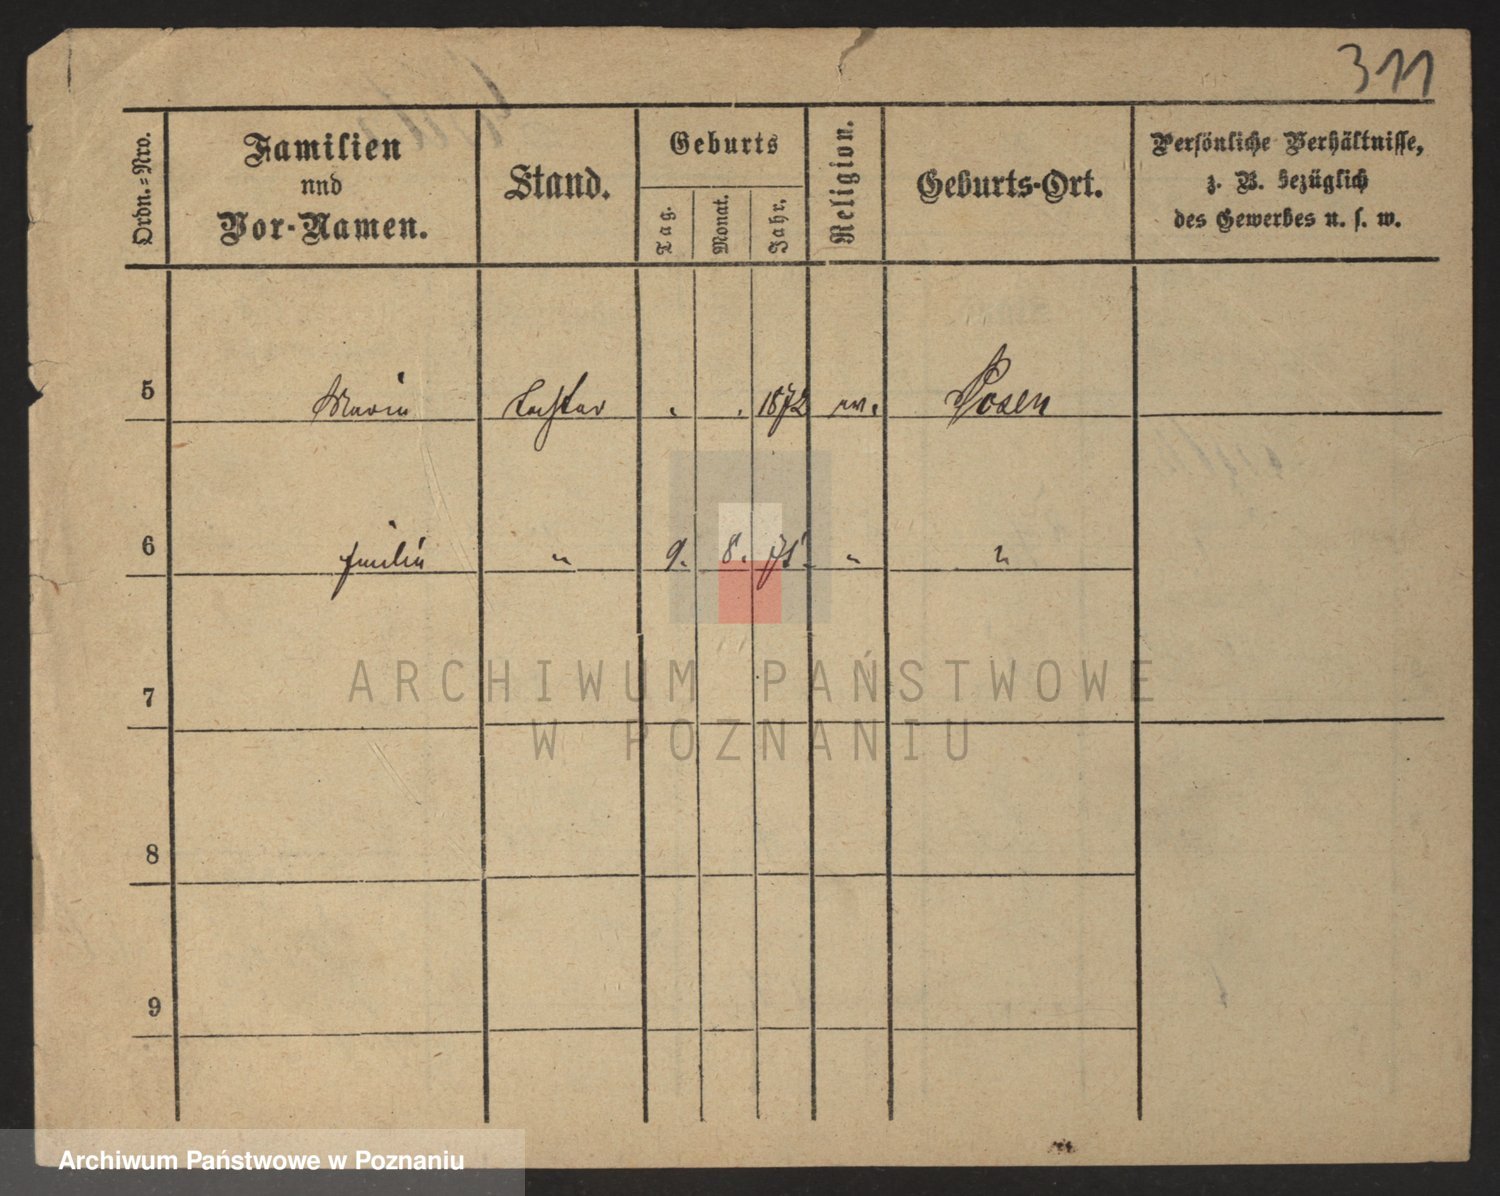 311
Ordn.=Nro.
Familien
nnd
Vor-Namen.
Stand.
Geburts
Tag.
Monat.
Jahr.
Religion.
Geburts-Ort.
Persönliche Verhältnisse,
z. B. bezüglich
des Gewerbes u. s. w.
5 Maria Tochter . . 1872 ev. Posen
6 Emilie " 9. 8. 75. " "
7
8
9
ARCHIWUM PAŃSTWOWE
W POZNANIU
Archiwum Państwowe w Poznaniu